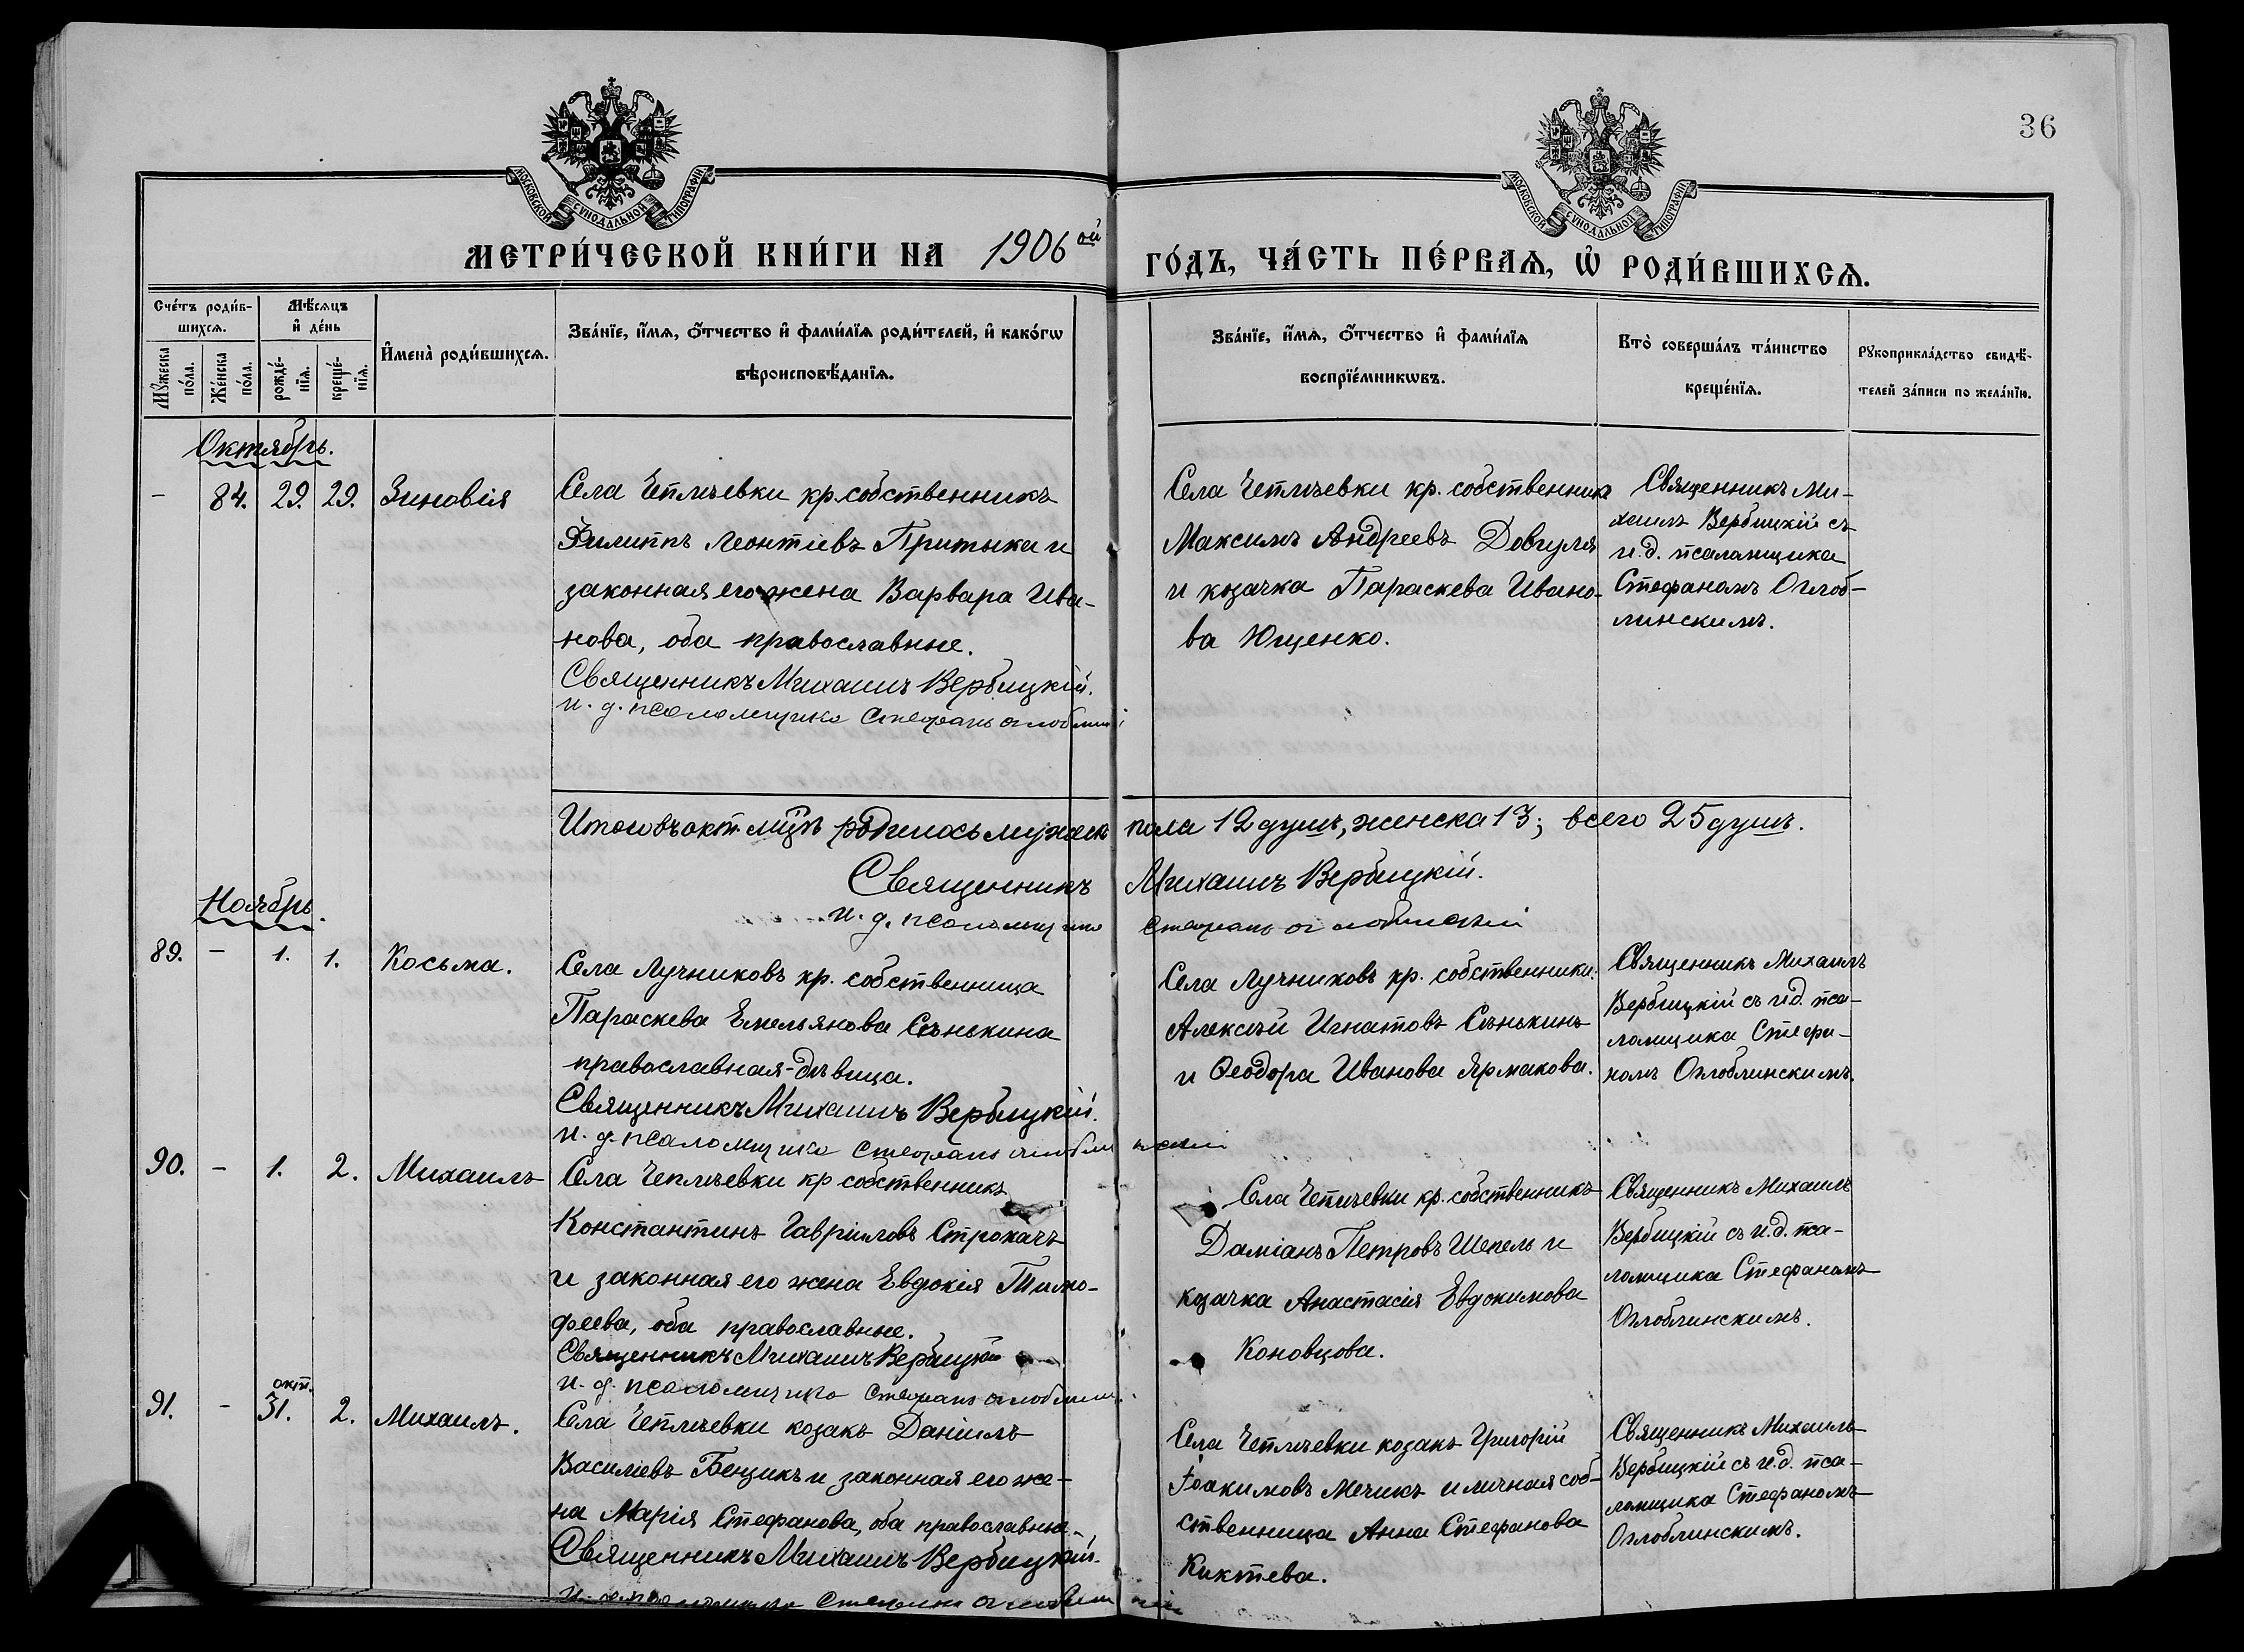 36
МОСКОВСКОЙ СѴНОДАЛЬНОЙ ТИПОГРАФІИ
МОСКОВСКОЙ СѴНОДАЛЬНОЙ ТИПОГРАФІИ
МЕТРИ́ЧЕСКОЙ КНИ́ГИ НА 1906ой ГО́ДЪ, ЧА́СТЬ ПЕ́РВАѦ, Ѡ҆ РОДИ́ВШИХСѦ.
Сче́тъ роди́в-
шихсѧ.
Мꙋ́жеска по́ла.
Же́нска по́ла.
Мѣ́сѧцъ и҆ де́нь
рожде́-
нїѧ.
креще́-
нїѧ.
И҆мена̀ роди́вшихсѧ.
Зва́нїе, и҆́мѧ, ѻ҆́тчество и҆ фами́лїѧ роди́телей, и҆ како́гѡ
вѣроисповѣ́данїѧ.
Зва́нїе, и҆́мѧ, ѻ҆́тчество и҆ фами́лїѧ
воспрїе́мникѡвъ.
Кто̀ соверша́лъ та́инство
креще́нїѧ.
Рꙋкоприкла́дство свидѣ́-
телей за́писи по жела́нїю.
Октябрь.
- 84. 29. 29. Зиновія
Села Чепліевки кр. собственникъ
Филиппъ Леонтіевъ Притыка и
законная его жена Варвара Ива-
нова, оба православные.
Священникъ Михаилъ Вербицкій.
и. д. псаломщика Стефанъ Оглоблинскій
Села Чепліевки кр. собственникъ
Максимъ Андреевъ Довгуля
и козачка Параскева Ивано-
ва Ющенко.
Священникъ Ми-
хаилъ Вербицкій съ
и. д. псаломщика
Стефаномъ Оглоб-
линскимъ.
Итого въ окт. мцѣ родилось мужеск пола 12 душъ, женска 13; всего 25 душъ.
Священникъ Михаилъ Вербицкій.
и. д. псаломщика Стефанъ Оглоблинскій
Ноябрь.
89. - 1. 1. Косьма.
Села Лучниковъ кр. собственница
Параскева Емельянова Сенькина
православная-дѣвица.
Священникъ Михаилъ Вербицкій.
и. д. псаломщика Стефанъ Оглоблинскій
Села Лучниковъ кр. собственники:
Алексѣй Игнатовъ Сенькинъ
и Ѳеодора Иванова Ярмакова.
Священникъ Михаилъ
Вербицкій съ и. д. пса-
ломщика Стефа-
номъ Оглоблинскимъ.
90. - 1. 2. Михаилъ
Села Чепліевки кр собственникъ
Константинъ Гавріиловъ Строкачъ
и законная его жена Евдокія Тимо-
феева, оба православные.
Священникъ Михаилъ Вербицкій
и. д. псаломщика Стефанъ Оглоблинскій
Села Чепліевки кр. собственникъ
Даміанъ Петровъ Шепель и
козачка Анастасія Евдокимова
Коновцова.
Священникъ Михаилъ
Вербицкій съ и. д. пса-
ломщика Стефаномъ
Оглоблинскимъ.
91. - окт. 31. 2. Михаилъ.
Села Чепліевки козакъ Даніилъ
Василіевъ Бенцикъ и законная его же-
на Марія Стефанова, оба православные.
Священникъ Михаилъ Вербицкій.
и. д. псаломщика Стефанъ Оглоблинскій
Села Чепліевки козакъ Григорій
Іоакимовъ Мечикъ и личная соб-
ственница Анна Стефанова
Киктева.
Священникъ Михаилъ
Вербицкій съ и. д. пса-
ломщика Стефаномъ
Оглоблинскимъ.